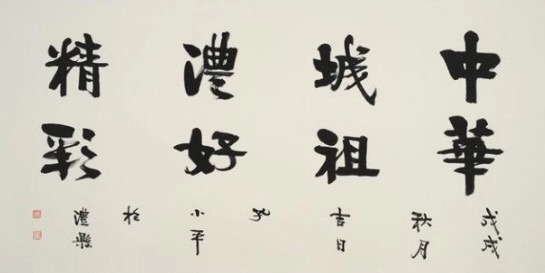 中華
城祖
澧好
精彩
戊戌
秋月
吉日
孔
小平
於
澧縣